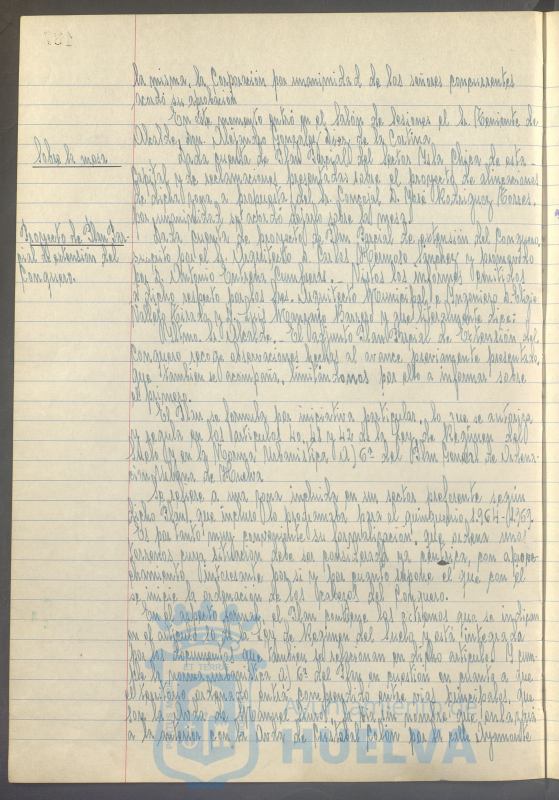 la misma, la Corporación por unanimidad de los señores concurrentes
acordó su aprobación
En este momento entró en el Salón de Sesiones el Sr. Teniente de
Alcalde, don Alejandro González de la Cortina
Sobre la mesa
Dada cuenta de Plan Parcial del Sector Isla Chica, de esta
Capital, y de reclamaciones presentadas sobre el proyecto de alineaciones
de dicha zona, a propuesta del Sr. Concejal D. José Rodríguez Torres,
por unanimidad se acordó dejarlo sobre la mesa
Proyecto de Plan Par-
cial de extensión del
Conquero.
Dada cuenta de proyecto de Plan Parcial de extensión del Conquero
suscrito por el Sr. Arquitecto D. Carlos Hermoso Sánchez y promovido
por D. Antonio Cumbreras. Vistos los informes emitidos
a dicho respecto por los Sres. Arquitecto Municipal e Ingeniero D. Eligio
Tirado y D. Luis Barrero y que literalmente dice:
Iltmo. Sr. Alcalde. El adjunto Plan Parcial de Extensión del
Conquero recoge observaciones hechas al avance previamente presentado,
que también se acompaña, limitándonos por ello a informar sobre
el primero.
El Plan se formula por iniciativa particular, lo que se autoriza
y regula en los artículos 40, 41 y 42 de la Ley de Régimen del
Suelo y en la Norma Urbanística a) 6ª del Plan General de Ordena-
ción Urbana de Huelva
Se refiere a una zona incluida en un sector preferente según
dicho Plan, que incluso lo programaba para el quinquenio, 1964-1969
Es por tanto muy conveniente su formalización, que ordena unos
terrenos cuya situación debe ser considerada ya céntrica, con aprove-
chamiento interesante por sí y por cuanto supone el que con él
se inicie la ordenación de los Cabezos del Conquero.
En el aspecto formal, el Plan contiene los extremos que se indican
en el artículo de la Ley de Régimen del Suelo y está integrada
por los documentos que también se relacionan en dicho artículo. Y cum-
ple la norma urbanística a) 6ª del Plan en cuestión en cuanto a que
el territorio ordenado está comprendido entre vías principales, que
son la Plaza de Manuel, la vía sin nombre que enlazará
a la anterior con la Avda. de Cristóbal Colón por la calle Ayamonte
Ayuntamiento de
HUELVA